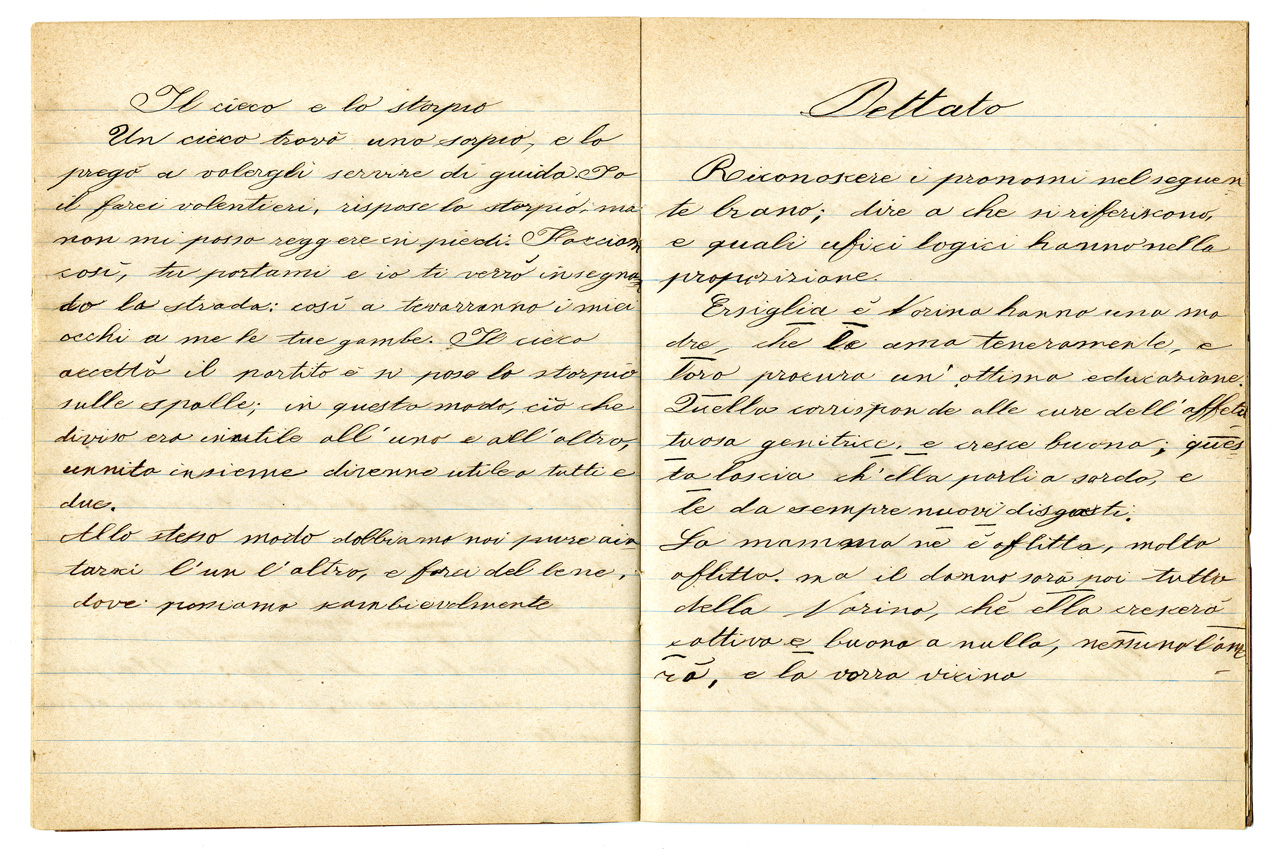 Il cieco e lo storpio
Un cieco trovò uno sorpio, e lo
pregò a volergli servire di guida. Io
il farei volentieri, rispose lo storpio, ma
non mi posso reggere in piedi. Facciam
così, tu portami e io ti verrò insegnan
do la strada: così a te varranno i miei
occhi a me le tue gambe. Il cieco
accettò il partito e si pose lo storpio
sulle spalle; in questo modo, ciò che
diviso era inutile all'uno e all'altro,
unnito insieme divenne utile a tutti e
due.
Allo stesso modo dobbiamo noi pure aiu
tarci l'un l'altro, e farci del bene,
dove possiamo scambievolmente
Dettato
Riconoscere i pronomi nel seguen
te brano; dire a che si riferiscono,
e quali ufici logici hanno nella
proposizione.
Ersiglia e Norina hanno una ma
dre, che le ama teneramente, e
loro procura un'ottima educazione.
Quella corrisponde alle cure dell'affet
tuosa genitrice, e cresce buona; ques
ta lascia ch'ella parli a sordo, e
le da sempre nuovi disgusti.
La mamma ne è aflitta, molto
aflitta. ma il danno sarà poi tutto
della Norina, ché ella crescerà
cattiva e buona a nulla, nessuno l'ame
rà, e la vorra vicina